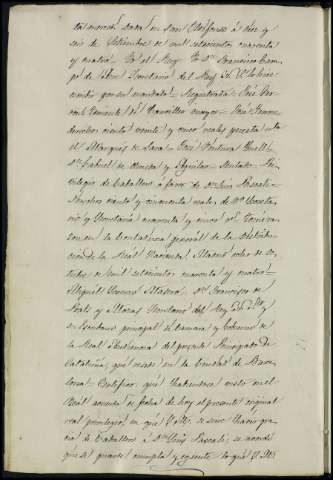 dha merced. Dada en San Ildefonso á diez y
seis de Setiembre de mil setecientos cuarenta
y cuatro. Yo el Rey. Yo Dn. Francisco Cam-
po de Secretario del Rey No. Sr. le hice
escribir por su mandato. Registrada. José Fer-
Teniente de Chanciller mayor. José
derechos ciento veinte y cinco reales
el Marques de Lara. José Ventura Güell.
Dn. Gabriel de Olmeda y Aguilar. Pri-
vilegio de Caballero á favor de Dn. Luis Pascali.
Derechos ciento y cincuenta reales de Vn. Secreta-
rio y cuarenta y cinco.
zon en la Contaduria general de la Distribu-
cion de la Real Hacienda. Madrid ocho de oc-
tubre de mil setecientos cuarenta y cuatro.
Miguel . Dn. Francisco de
Prats y Matas Secretario del Rey No. Sr. y
su Escribano principal de Camara y Gobierno de
la Real Audiencia del presente Principado de
Cataluña, que reside en la Ciudad de Barce-
lona. Certifico: que habiendose visto en el
Real acuerdo en fecha de hoy el presente original
real privilegio, en que S. M. se sirve hacer gra-
cia de Caballero á Dn. Luis Pascali, se acordó
que se guarde cumpla y egecute lo que S. M.